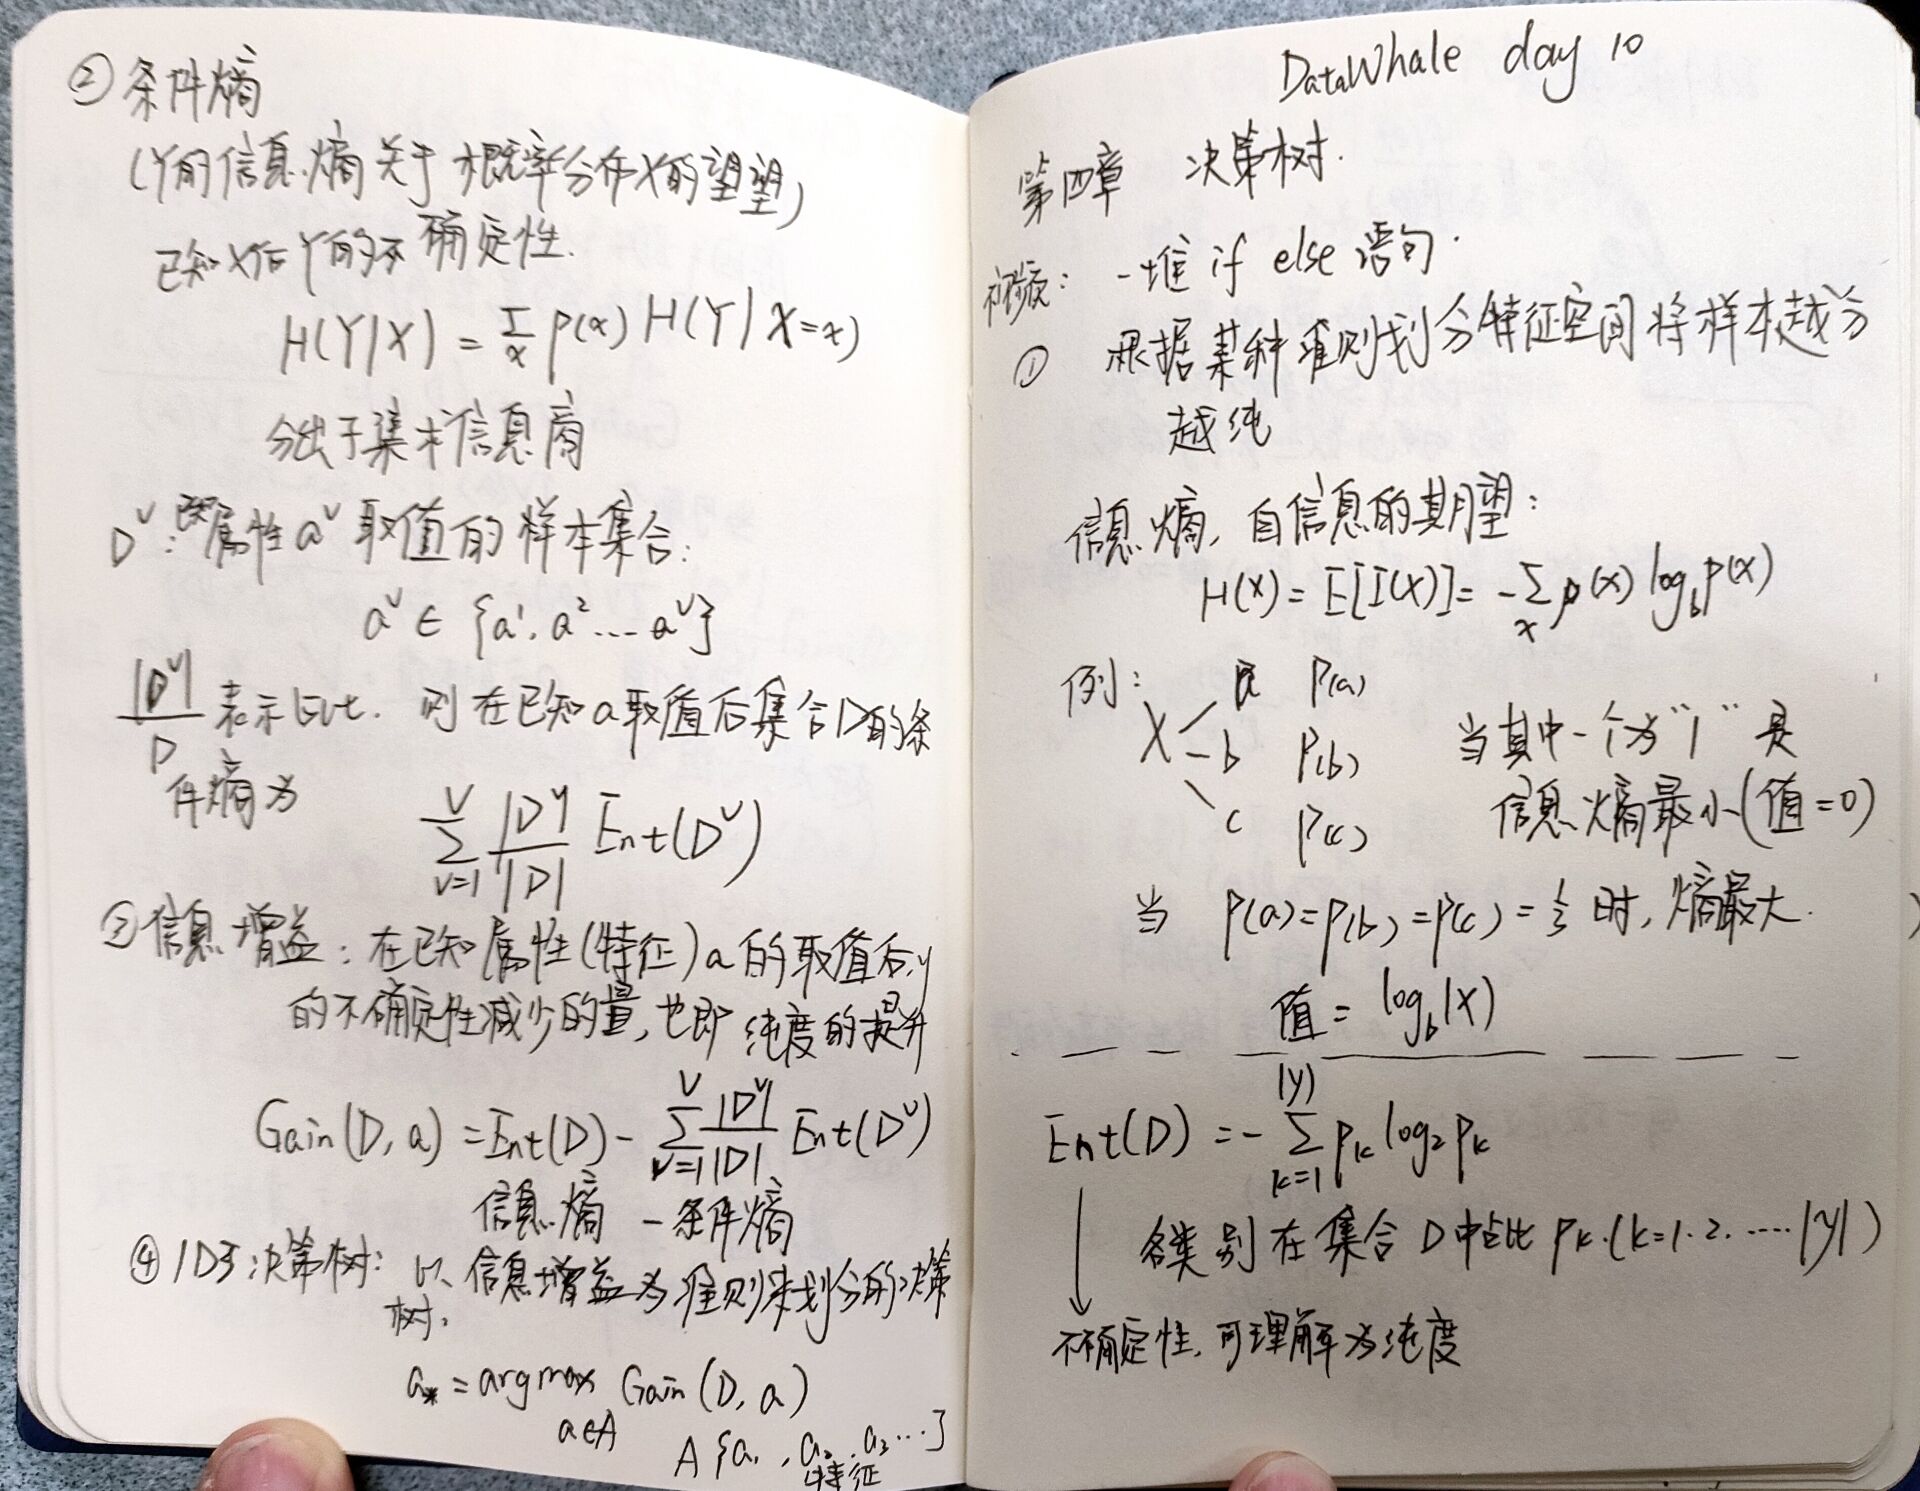 ② 条件熵
(Y的信息熵关于概率分布X的望望)
已知X后Y的不确定性.
H(Y|X) = Σx p(x) H(Y|X=x)
分出子集求信息熵
D^v: 已知属性a^v取值的样本集合:
a^v ∈ {a^1, a^2 ... a^v}
|D^v|/D 表示占比. 则在已知a取值后集合D的条
件熵为
Σ_{v=1}^{V} |D^v|/|D| Ent(D^v)
③ 信息增益: 在已知属性(特征)a的取值后y
的不确定性减少的量, 也即纯度的提升
Gain(D, a) = Ent(D) - Σ_{v=1}^{V} |D^v|/|D| Ent(D^v)
信息熵 - 条件熵
④ ID3决策树: 以信息增益为准则来划分的决策
树.
a* = argmax Gain(D, a)
a∈A
A {a1, a2, a3 ...}
特征
DataWhale day 10
第四章 决策树.
视频: 一堆 if else 语句.
① 根据某种准则划分特征空间将样本越分
越纯
信息熵, 自信息的期望:
H(X) = E[I(X)] = -Σx p(x) log_b p(x)
例: a p(a)
X b p(b) 当其中一个为"1" 是
信息熵最小(值=0)
c p(c)
当 p(a)=p(b)=p(c)=1/3 时, 熵最大.
值 = log_b|X|
Ent(D) = -Σ_{k=1}^{|y|} pk log2 pk
各类别在集合D中占比 pk.(k=1.2.....|y|)
不确定性, 可理解为纯度